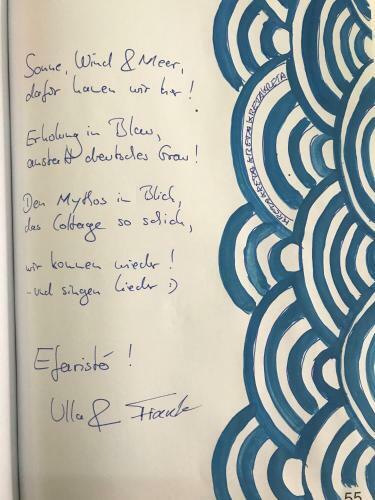 Sonne, Wind & Meer,
dafür kamen wir her!
Erholung in Blau,
anstatt deutsches Grau!
Den Mythos im Blick,
das Cottage so schick,
wir kommen wieder!
-und singen Lieder :)
Efaristó!
Ulla & Frank
KRETA KRETA KRETA KRETA KRETA
55